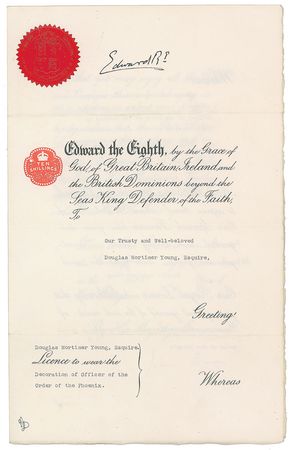 Edward R.I.
TEN
SHILLINGS
Edward the Eighth, by the Grace of
God, of Great Britain, Ireland, and
the British Dominions beyond the
Seas King, Defender, of the Faith,
To
Our Trusty and Well-beloved
Douglas Mortimer Young, Esquire,
Greeting
Douglas Mortimer Young, Esquire.
Licence to wear the
Decoration of Officer of the
Order of the Phoenix.
Whereas